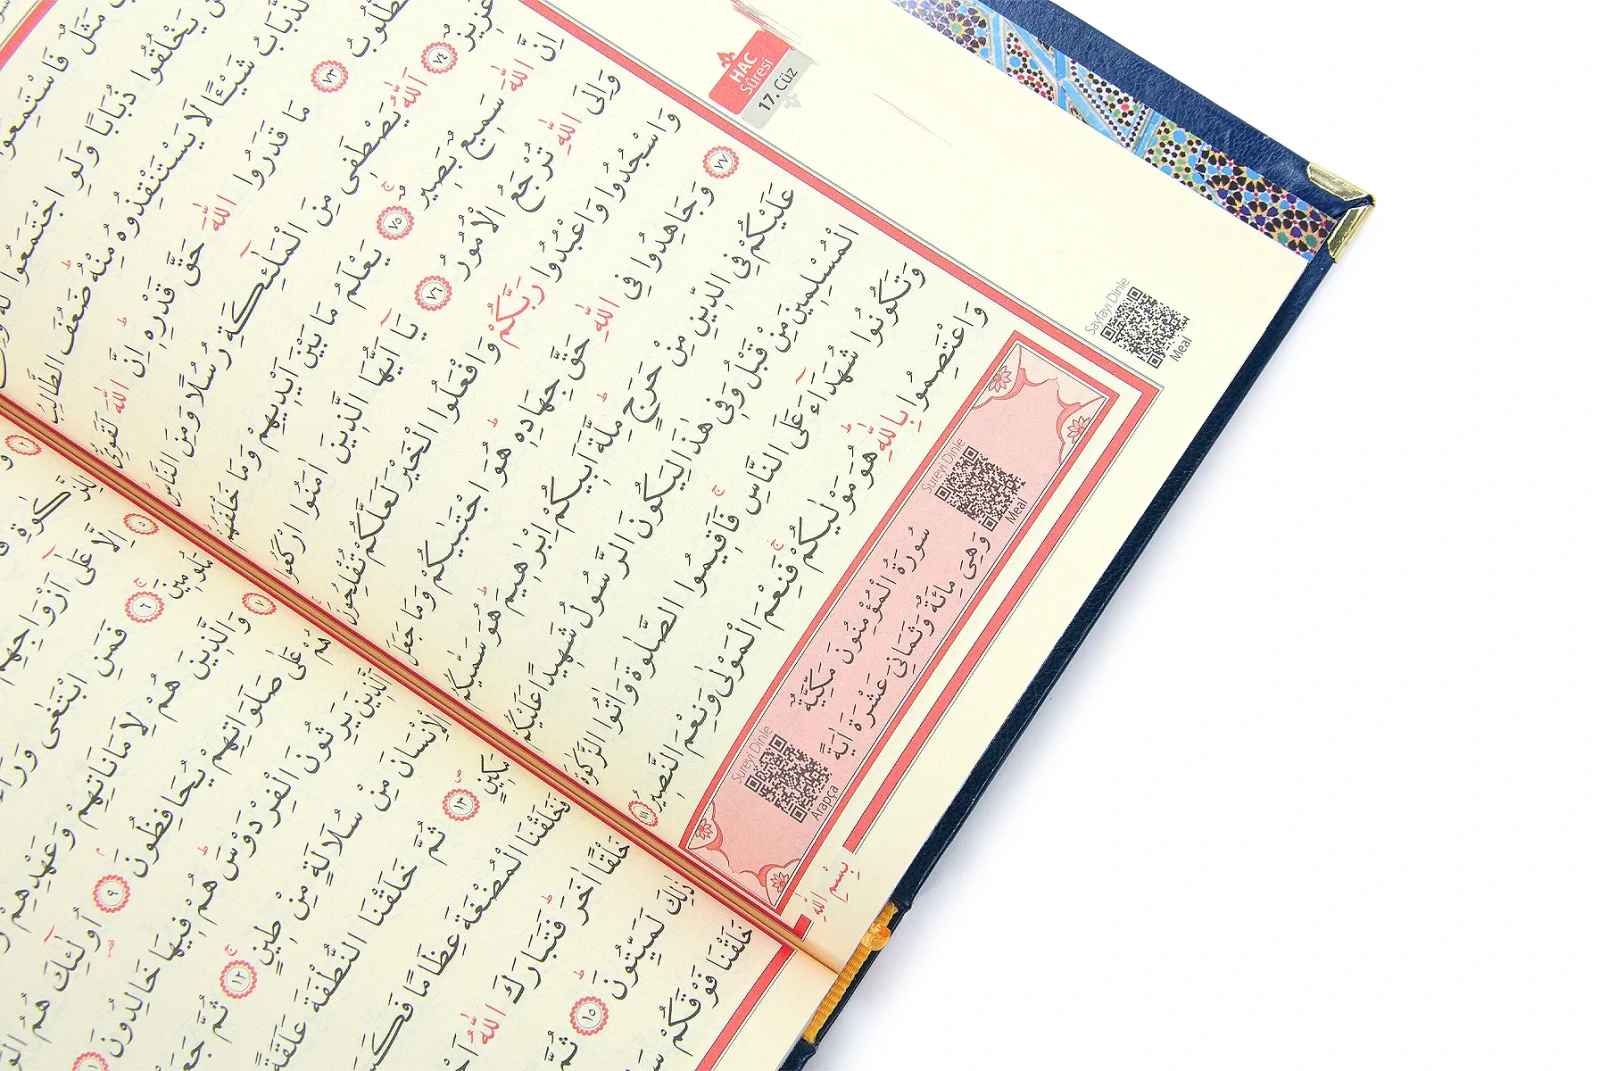 HAC
Sûresi
17. Cüz
مَثَلٌ فَاسْتَمِعُوا
يَخْلُقُوا ذُبَابًا وَلَوِ اجْتَمَعُوا لَهُ
الذُّبَابُ شَيْـًٔا لَا يَسْتَنْقِذُوهُ مِنْهُ ضَعُفَ الطَّالِبُ
٧٣ مَا قَدَرُوا اللّٰهَ حَقَّ قَدْرِهِ اِنَّ اللّٰهَ لَقَوِيٌّ
عَزِيزٌ ٧٤ اَللّٰهُ يَصْطَفِي مِنَ الْمَلٰٓئِكَةِ رُسُلًا وَمِنَ النَّاسِ
اِنَّ اللّٰهَ سَمِيعٌ بَصِيرٌ ٧٥ يَعْلَمُ مَا بَيْنَ اَيْدِيهِمْ وَمَا خَلْفَهُمْ
وَاِلَى اللّٰهِ تُرْجَعُ الْاُمُورُ ٧٦ يَٓا اَيُّهَا الَّذِينَ اٰمَنُوا ارْكَعُوا
وَاسْجُدُوا وَاعْبُدُوا رَبَّكُمْ وَافْعَلُوا الْخَيْرَ لَعَلَّكُمْ تُفْلِحُونَ
٧٧ وَجَاهِدُوا فِي اللّٰهِ حَقَّ جِهَادِهِ هُوَ اجْتَبٰيكُمْ وَمَا جَعَلَ
عَلَيْكُمْ فِي الدِّينِ مِنْ حَرَجٍ مِلَّةَ اَبِيكُمْ اِبْرٰهِيمَ هُوَ سَمّٰيكُمُ
الْمُسْلِمِينَ مِنْ قَبْلُ وَفِي هٰذَا لِيَكُونَ الرَّسُولُ شَهِيدًا عَلَيْكُمْ
وَتَكُونُوا شُهَدَٓاءَ عَلَى النَّاسِ فَاَقِيمُوا الصَّلٰوةَ وَاٰتُوا الزَّكٰوةَ
وَاعْتَصِمُوا بِاللّٰهِ هُوَ مَوْلٰيكُمْ فَنِعْمَ الْمَوْلٰى وَنِعْمَ النَّصِيرُ
Sayfayı Dinle
Meal
Sureyi Dinle
Meal
سُورَةُ الْمُؤْمِنُونَ مَكِّيَّةٌ
وَهِيَ مِائَةٌ وَثَمَانِيَ عَشْرَةَ اٰيَةً
Sureyi Dinle
Arapça
بِسْمِ اللّٰهِ
٥ اِلَّا عَلٰٓى اَزْوَاجِهِمْ
٦ فَمَنِ ابْتَغٰى وَرَٓاءَ
٧ وَالَّذِينَ هُمْ لِاَمَانَاتِهِمْ وَعَهْدِهِمْ
هُمْ عَلٰى صَلَوَاتِهِمْ يُحَافِظُونَ ٩ اُولٰٓئِكَ هُمُ
الَّذِينَ يَرِثُونَ الْفِرْدَوْسَ هُمْ فِيهَا خَالِدُونَ
الْاِنْسَانَ مِنْ سُلَالَةٍ مِنْ طِينٍ ١٢ ثُمَّ
مَكِينٍ ١٣ ثُمَّ خَلَقْنَا النُّطْفَةَ عَلَقَةً
فَخَلَقْنَا الْمُضْغَةَ عِظَامًا
خَلْقًا اٰخَرَ فَتَبَارَكَ اللّٰهُ
ذٰلِكَ لَمَيِّتُونَ ١٥ ثُمَّ
خَلَقْنَا فَوْقَكُمْ